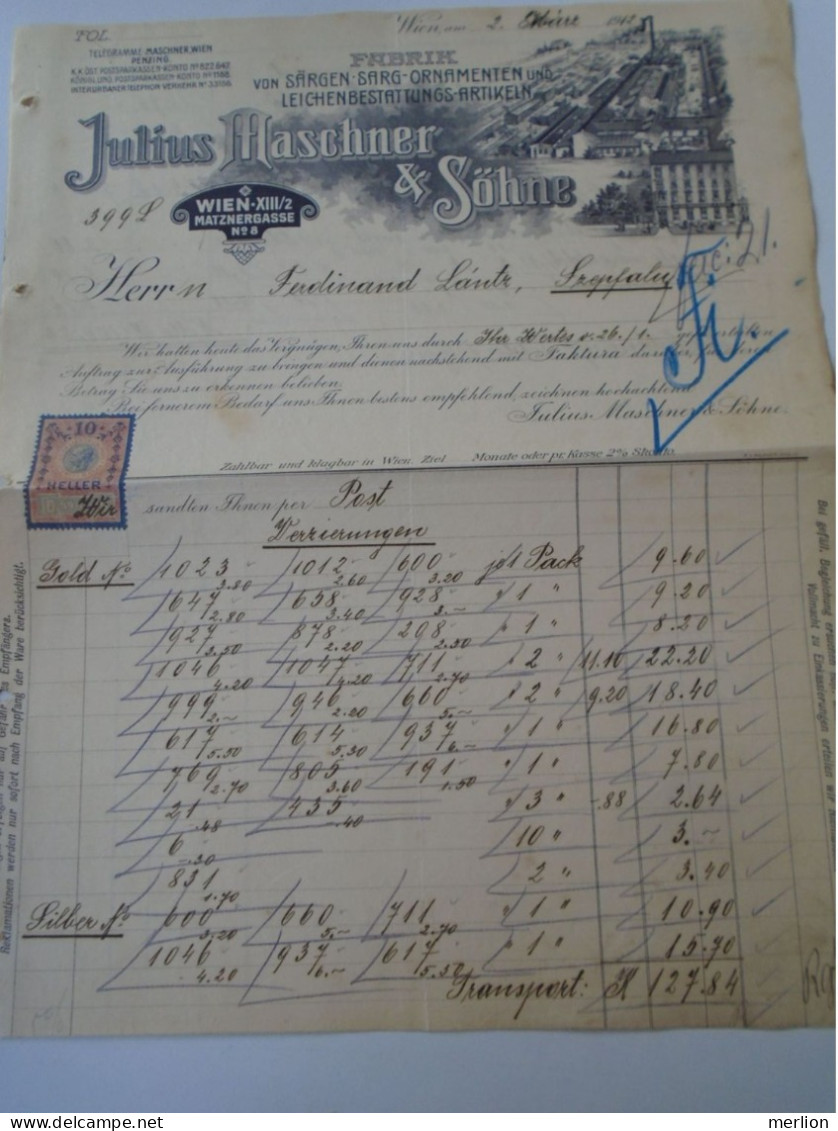 FOL.
Wien, am 2. März 191
TELEGRAMME: MASCHNER, WIEN
PENZING.
K.K. ÖST. POSTSPARKASSEN-KONTO Nº 822.642
KÖNIGL. UNG. POSTSPARKASSEN-KONTO Nº
INTERURBANER TELEPHON VERKEHR Nº
FABRIK
VON SÄRGEN-SARG-ORNAMENTEN UND
LEICHENBESTATTUNGS-ARTIKELN
Julius Maschner
& Söhne
WIEN·XIII/2
MATZNERGASSE
Nº 8
399 L
21.
Herrn Ferdinand Lántz,
Wir hatten heute das Vergnügen, Ihren uns durch Ihr Wertes v. 26./1.
Auftrag zur Ausführung zu bringen und dienen nachstehend mit Faktura
Betrag Sie uns zu erkennen belieben.
Bei fernerem Bedarf uns Ihnen bestens empfehlend, zeichnen hochachtend
Julius Maschner & Söhne.
10
HELLER
Wir
Zahlbar und klagbar in Wien. Ziel Monate oder pr. Kasse 2% Skonto.
sandten Ihnen per Post
Verzierungen
Gold No 1023 1012 600 je 1 Pack 9.60
3.80 2.60 3.20
647 658 928 " 1 " 9.20
2.80 3.40 3.–
927 878 208 " 1 " 8.20
3.50 2.20 2.50
1046 1047 711 " 2 " 11.10 22.20
4.20 4.20 2.70
999 946 660 " 2 " 9.20 18.40
2.– 2.20 5.–
617 614 937 " 1 " 16.80
5.50 5.30 6.–
769 805 191 " 1 " 7.80
2.70 3.60 1.50
21 435 " 3 " -.88 2.64
-.48 -.40
6 10 " 3.–
-.30
831 2 " 3.40
1.70
Silber No 600 660 711 " 1 " 10.90
3.20 5.– 2.70
1046 937 617 " 1 " 15.70
4.20 6.– 5.50
Transport: K 127.84
Reklamationen werden nur sofort nach Empfang der Ware berücksichtigt.
merlion